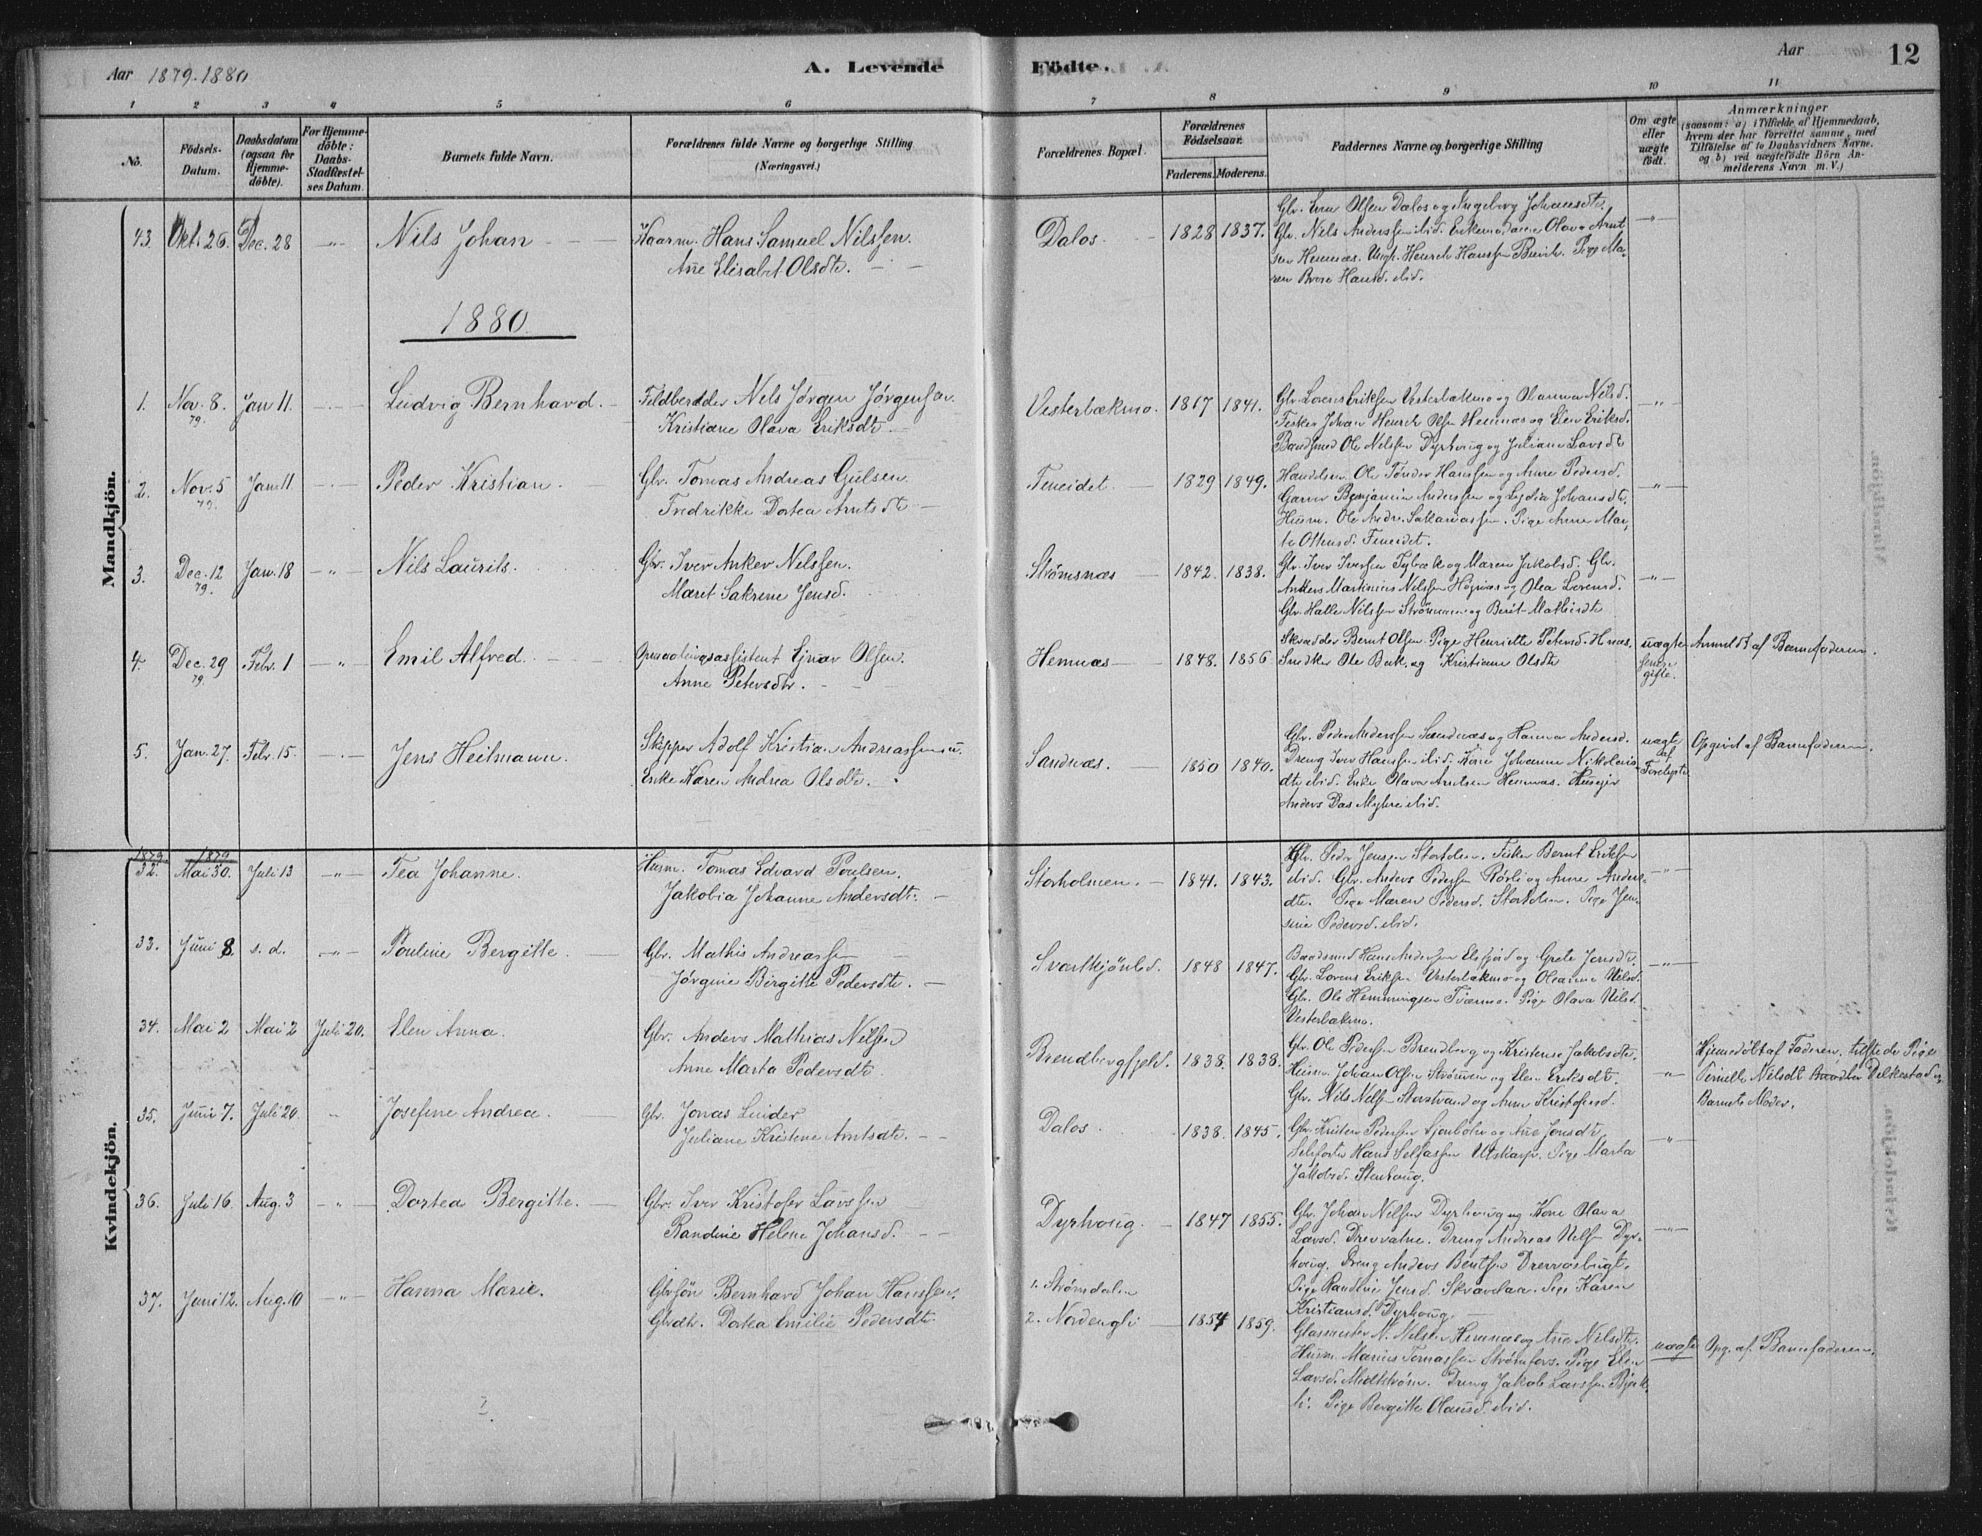 Aar 1879-1880
A. Levende Födte.
Aar
12
1 2 3 4 5 6 7 8 9 10 11
No.
Födsels-Datum.
Daabsdatum (ogsaa for Hjemmedöbte).
For Hjemmedöbte: Daabs-Stadfæstelses Datum.
Barnets fulde Navn.
Forældrenes fulde Navne og borgerlige Stilling (Næringsvei.)
Forældrenes Bopæl.
Forældrenes Födselsaar.
Faderens. Moderens.
Faddernes Navne og borgerlige Stilling
Om ægte eller uægte födt.
Anmærkninger (saasom: a) i Tilfælde af Hjemmedaab, hvem der har forrettet samme, med Tilföielse af to Daabsvidners Navne, og b) ved uægtefödte Börn Anmelderens Navn m. V.)
Mandkjön.
43. Okt. 26. Dec. 28 -"- Nils Johan
Hans Samuel Nilssen.
Ane Elisabet Olsdt.
Dalos. 1828 1837.
Olsen Dalos og Ingeborg Johansdt.
Gbr. Nils Anderssen ibid. Enkemadame Olava Arnt
sen Hemnæs. Ungk. Henrik Hanssen Pige Ma-
ren Hansd. ibid.
-"-
1880
1. Nov. 8. 79. Jan 11. Ludvig Bernhard.
Nils Jørgen Jørgensen.
Kristiane Olava Eriksdt
Vesterbækmo. 1817 1841.
Gbr. Lorens Eriksen Vesterbækmo og Olanna Nilsd.
Fisker Johan Henrik Olsen Hemnæs og Elen Eriksd.
Baadsmd Ole Nilssen Dyrhoug og Juliane Larsdt
-"-
2. Nov. 5 79. Jan. 11 Peder Kristian.
Gbr. Tomas Andreas Gulsen.
Fredrikke Dortea Arntsdt
Fineidet. 1829 1849.
Ole Tønder Hanssen og Anne Pedersd.
Garver Benjamin Anderssen og Lydia Johansdt.
Husm. Ole Andr. Sakariassen. Pige Anne Mar-
ta Ottensd. Fineidet.
-"-
3. Dec. 12 79. Jan. 18 -"- Nils Laurits.
Gbr. Iver Anker Nilssen.
Maret Sakrine Jensd.
Strømsnæs 1842. 1838.
Gbr. Iver Iverssen Tybæk og Maren Jakobsd. Gbr.
Ankers Martinius Nilssen Høgnæs og Olea Lorensd.
Gbr. Halle Nilssen og Berit Mathisdt
-"-
4. Dec. 29 79. Febr. 1 -"- Emil Alfred.
Opmaalingsassistent Ejnar Olsen.
Anne Petersdtr.
Hemnæs 1848. 1856
Skrædder Bernt Olsen. Pige Henriette Petersd. Hnæs.
Snedker Ole Bak, og Kristiane Olsdt
uægte
gifte.
Anmeldt af Barnefaderen.
5. Jan. 27. Febr. 15. Jens Heilmann.
Skipper Adolf Kristian Andreassen u.
Enke Karen Andrea Olsdt.
Sandnæs. 1850 1840.
Gbr. Peder Anderssen Sandnæs og Hanna Andersd.
Dreng Iver Hanssen ibid. Kone Johanne Nikolais-
dt. ibid. Enke Olava Arntsen Hemnæs. Husejer
Anders Das Myhre ibid.
uægte
af
Forlovede
Opgivet af Barnefaderen.
Kvindekjön.
1879. 1879
32. Mai 30. Juli 13 -"- Tea Johanne.
Husm. Tomas Edvard Poulsen.
Jakobia Johanne Andersdt.
Storholmen. 1841. 1843.
Gbr. Peder Jensen Fisker Bernt Eriksen
ibid. Gbr. Anders Pedersen Rørli og Anne Anders-
dt. Pige Maren Pedersd. Pige Jen-
sine Pedersd. ibid.
-"-
33. Juni 8. s. d. -"- Pouline Bergitte.
Gbr. Mathis Andreassen
Jørgine Birgitte Pedersdt.
Svartkjønlid. 1848 1847.
Baadsmd Hans Anderssen Elsfjord og Grete Jensdt.
Gbr. Lorens Eriksen Vesterbækmo og Oleanna Nilsd.
Gbr. Ole Hemmingsen Tværmo. Pige Olava Nilsd.
Vesterbækmo.
-"-
34. Mai 2 Mai 2 Juli 20. Elen Anna.
Gbr. Anders Mathias Nilssen
Anne Marta Pedersdt.
Brendbergfjeld. 1838. 1838.
Gbr. Ole Pedersen Brendberg og Kristense Jakobsdt.
Husm. Johan Olsen Strømmen og Elen Eriksdt.
Gbr. Nils Nilssen Storstrand og Anne Kristofersd.
-"-
Hjemmedøbt af Faderen, tilstede Pige
Pernelle Nilsdt og
Barnets Moder.
35. Juni 7. Juli 20. -"- Josefine Andrea.
Gbr. Jonas Linder
Juliane Kristine Arntsdt.
Dalos. 1838. 1845.
Gbr. Kristen Pedersen og Ane Jonsdt.
Hans Selfassen Utskarp. Pige Marta
Jakobsd. Stenhoug.
-"-
36. Juli 16. Aug. 3 -"- Dortea Bergitte.
Gbr. Iver Kristofer Larssen
Randine Helene Johansd.
Dyrhoug. 1847 1855.
Gbr. Johan Nilsen Dyrhoug og Kone Olava
Larsd. Drevvatne. Dreng Andreas Nilss. Dyr-
houg. Dreng Anders Bentsen
Pige Randine Jensd. Skravlaa. Pige Karen
Kristiansd. Dyrhoug.
-"-
37. Juni 12. Aug. 10 -"- Hanna Marie.
Gbrsøn Bernhard Johan Hanssen.
Gbrdtr. Dortea Emilie Pedersdt.
1. Strømdalen
2. Nordengli 1854 1859.
Glasmester N. Nilsen Hemnæs og Ane Nilsdt.
Husm. Marius Tomassen Strømfors. Pige Elen
Larsd. Midtstrøm. Dreng Jakob Larssen Bjerk-
li. Pige Bergitte Olausd. ibid.
uægte
Opg. af Barnefaderen.